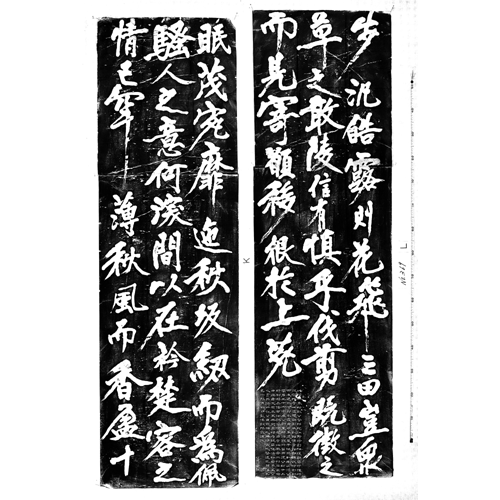 眠茂宛靡迎秋坂紉而爲佩
騷人之意何深間以在衿楚客之
情已罕薄秋風而香盈十
步汎皓露則花飛三田豈衆
草之敢陵信有慎乎伐剪既徵之
而見寄願移根於上苑
K
L